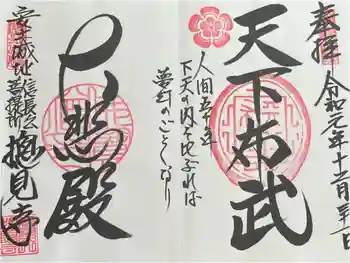 奉拝 令和元年十二月三十一日
天下布武
人間五十年
下天の内を比ぶれば
夢幻のごとくなり
大悲殿
安土城址 信長公菩提所
摠見寺